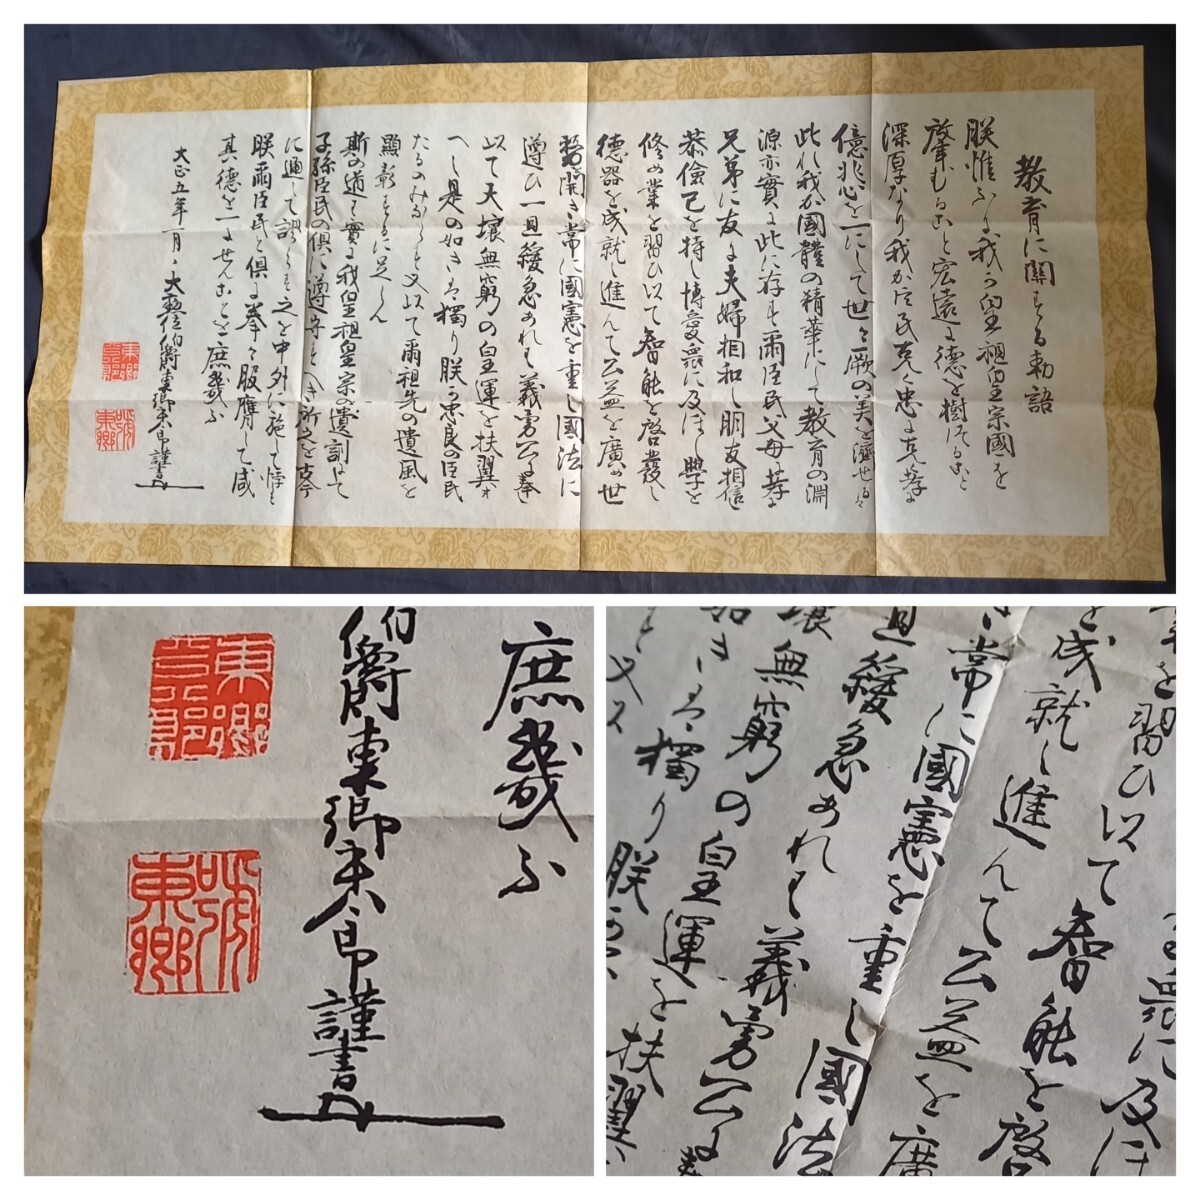 教育に關する勅語
朕惟ふに我か皇祖皇宗國を
肇むること宏遠に德を樹つること
深厚なり我か臣民克く忠に克く孝に
億兆心を一にして世々厥の美を濟せるは
此れ我か國體の精華にして教育の淵
源亦實に此に存す爾臣民父母に孝に
兄弟に友に夫婦相和し朋友相信し
恭儉己を持し博愛衆に及ほし學を
修め業を習ひ以て智能を啓發し
德器を成就し進んて公益を廣め世
務を開き常に國憲を重し國法に
遵ひ一旦緩急あれは義勇公に奉し
以て天壤無窮の皇運を扶翼す
へし是の如きは獨り朕か忠良の臣民
たるのみならす又以て爾祖先の遺風を
顯彰するに足らん
斯の道は實に我皇祖皇宗の遺訓にして
子孫臣民の俱に遵守すへき所之を古今
に通して謬らす之を中外に施して悖らす
朕爾臣民と俱に拳々服膺して咸
其德を一にせんことを庶幾ふ
大正五年一月 大勲位伯爵東郷平八郎謹書
庶幾ふ
伯爵東郷平八郎謹書
東郷
衆に及ほ
を習ひ以て智能を啓
成就し進んて公益を廣
き常に國憲を重し國法
旦緩急あれは義勇公に
壤無窮の皇運を扶翼
如きは獨り朕か
又以